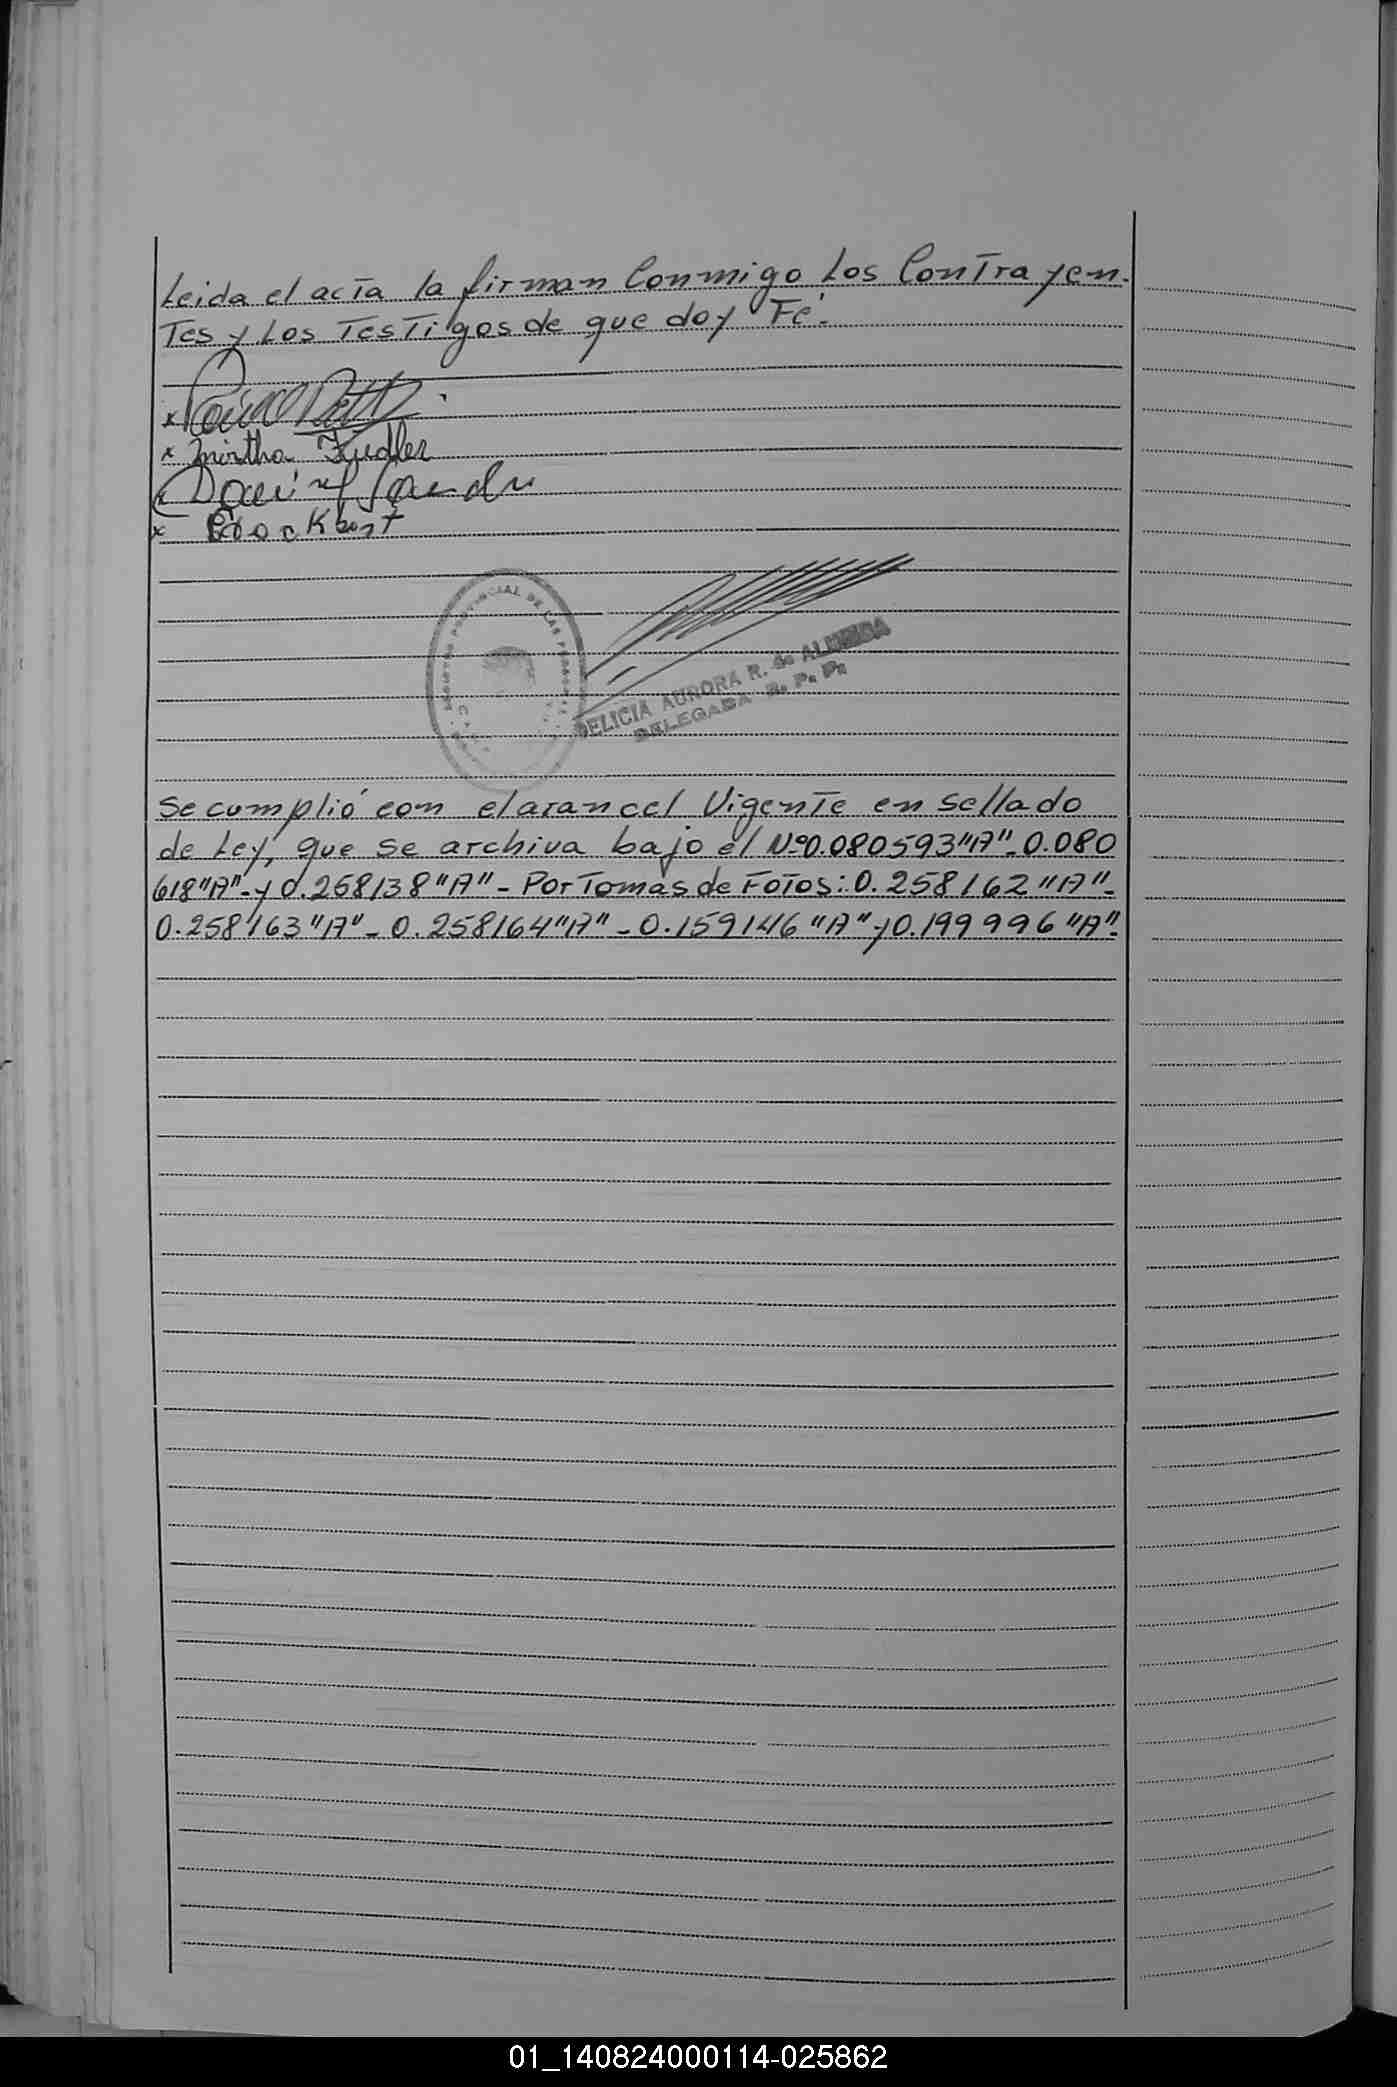 Leida el acta la firman Conmigo Los Contrayen-
tes y Los Testigos de que doy Fé.-
x
x Mirtha Fiedler
x Daniel
x
REGISTRO PROVINCIAL DE LAS PERSONAS
DELICIA AURORA R. de ALMEIDA
DELEGADA R. P. P.
Se cumplió con el arancel Vigente en Sellado
de Ley, que se archiva bajo el Nº0.080593"A"-0.080
618"A"-y 0.258138"A"- Por Tomas de Fotos: 0.258162"A"-
0.258163"A"- 0.258164"A"- 0.159146"A" y 0.199996"A"-
01_140824000114-025862